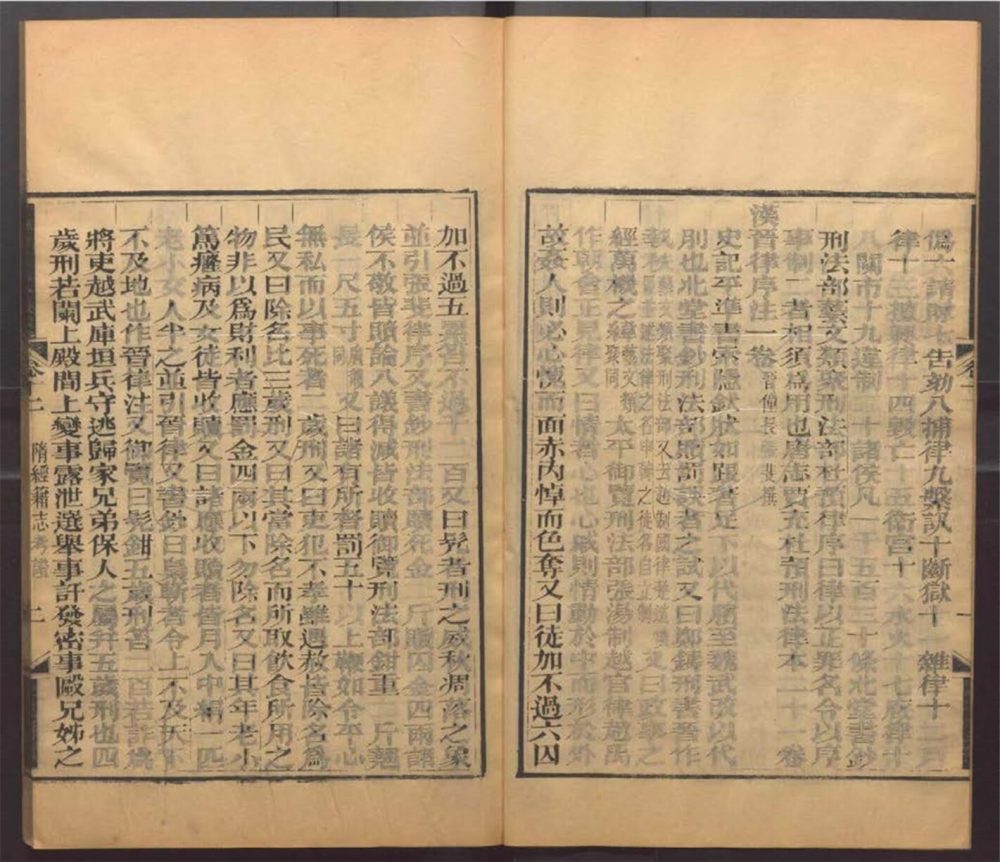 僞六請賕七告劾八捕律九繫訊十斷獄十一雜律十二戸
律十三擅興律十四毀亡十五衛宮十六水火十七廐律十
八關市十九違制二十諸侯凡一千五百三十條北堂書鈔
刑法部藝文類聚刑法部杜預律序曰律以正罪名令以序
事制二者相須爲用也唐志賈充杜預刑法律本二十一卷
漢晉律序注一卷晉僮長張斐撰
史記平準書索隱釱狀如跟著足下以代臏至魏武改以代
刖也北堂書鈔刑法部贖罰誤者之試又曰鄭鑄刑書晉作
執秩
經萬機之 太平御覽刑法部張湯制越官律趙禹
作朝會正見律又曰情者心也心戚則情動於中而形於外
故姦人則必心愧而面赤內怖而色奪又曰徒加不過六囚
加不過五累笞不過千二百又曰髡者刑之威秋凋落之象
並引張斐律序又書鈔刑法部贖死金二斤贖囚金四兩諸
侯不敬皆贖論八議得減皆收贖御覽刑法部鉗重二斤翹
長一尺五寸 又曰諸有所督罰五十以上鞭如令平心
無私而以辜死者二歲刑又曰吏犯不孝雖遇赦皆除名爲
民又曰除名比三歲刑又曰其當除名而所取飲食所用之
物非以爲財利者應罰金四兩以下勿除名又曰其年老小
篤癃病及女徒皆收贖又曰諸應收贖者皆月入中絹一匹
老小女人半之並引晉律又書鈔曰梟斬者令上不及天下
不及地也作晉律注又御覽曰髡鉗五歲刑笞二百若詐僞
將吏越武庫垣兵守逃歸家兄弟保人之屬并五歲刑也四
歲刑若闌上殿間上變事露泄選舉事訐發密事毆兄姊之
卷十二
隋經籍志考證
二